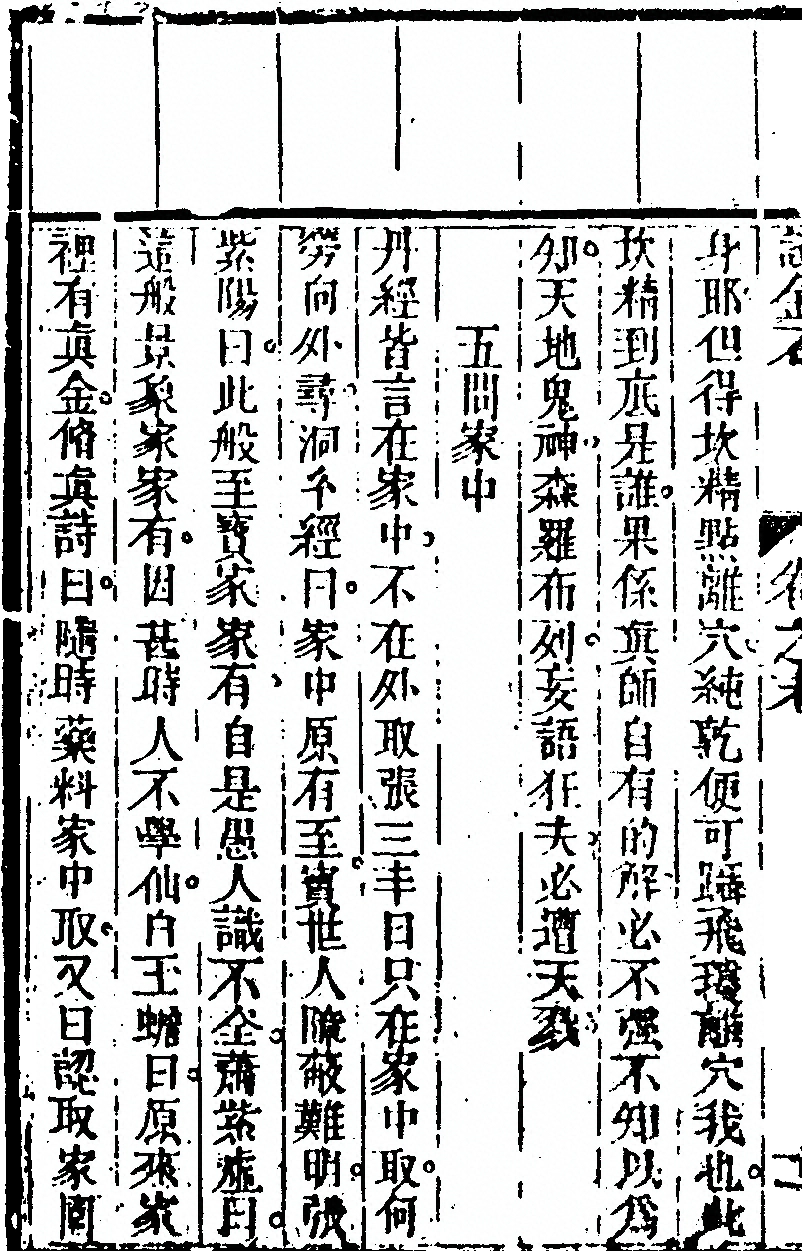 身耶但得坎精點離穴純乾便可躡飛瓊離穴我也此
坎精到底是誰果係真師自有的解必不强不知以爲
知天地鬼神森羅布列妄語狂夫必遭天戮
五問家中
丹經皆言在家中不在外取張三丰曰只在家中取何
勞向外尋洞玄經曰家中原有至寶世人障蔽難明張
紫陽曰此般至寶家家有自是愚人識不全蕭紫虛曰
這般景象家家有因甚時人不學仙白玉蟾曰原來家
裡有眞金脩眞詩曰隨時藥料家中取又曰認取家園